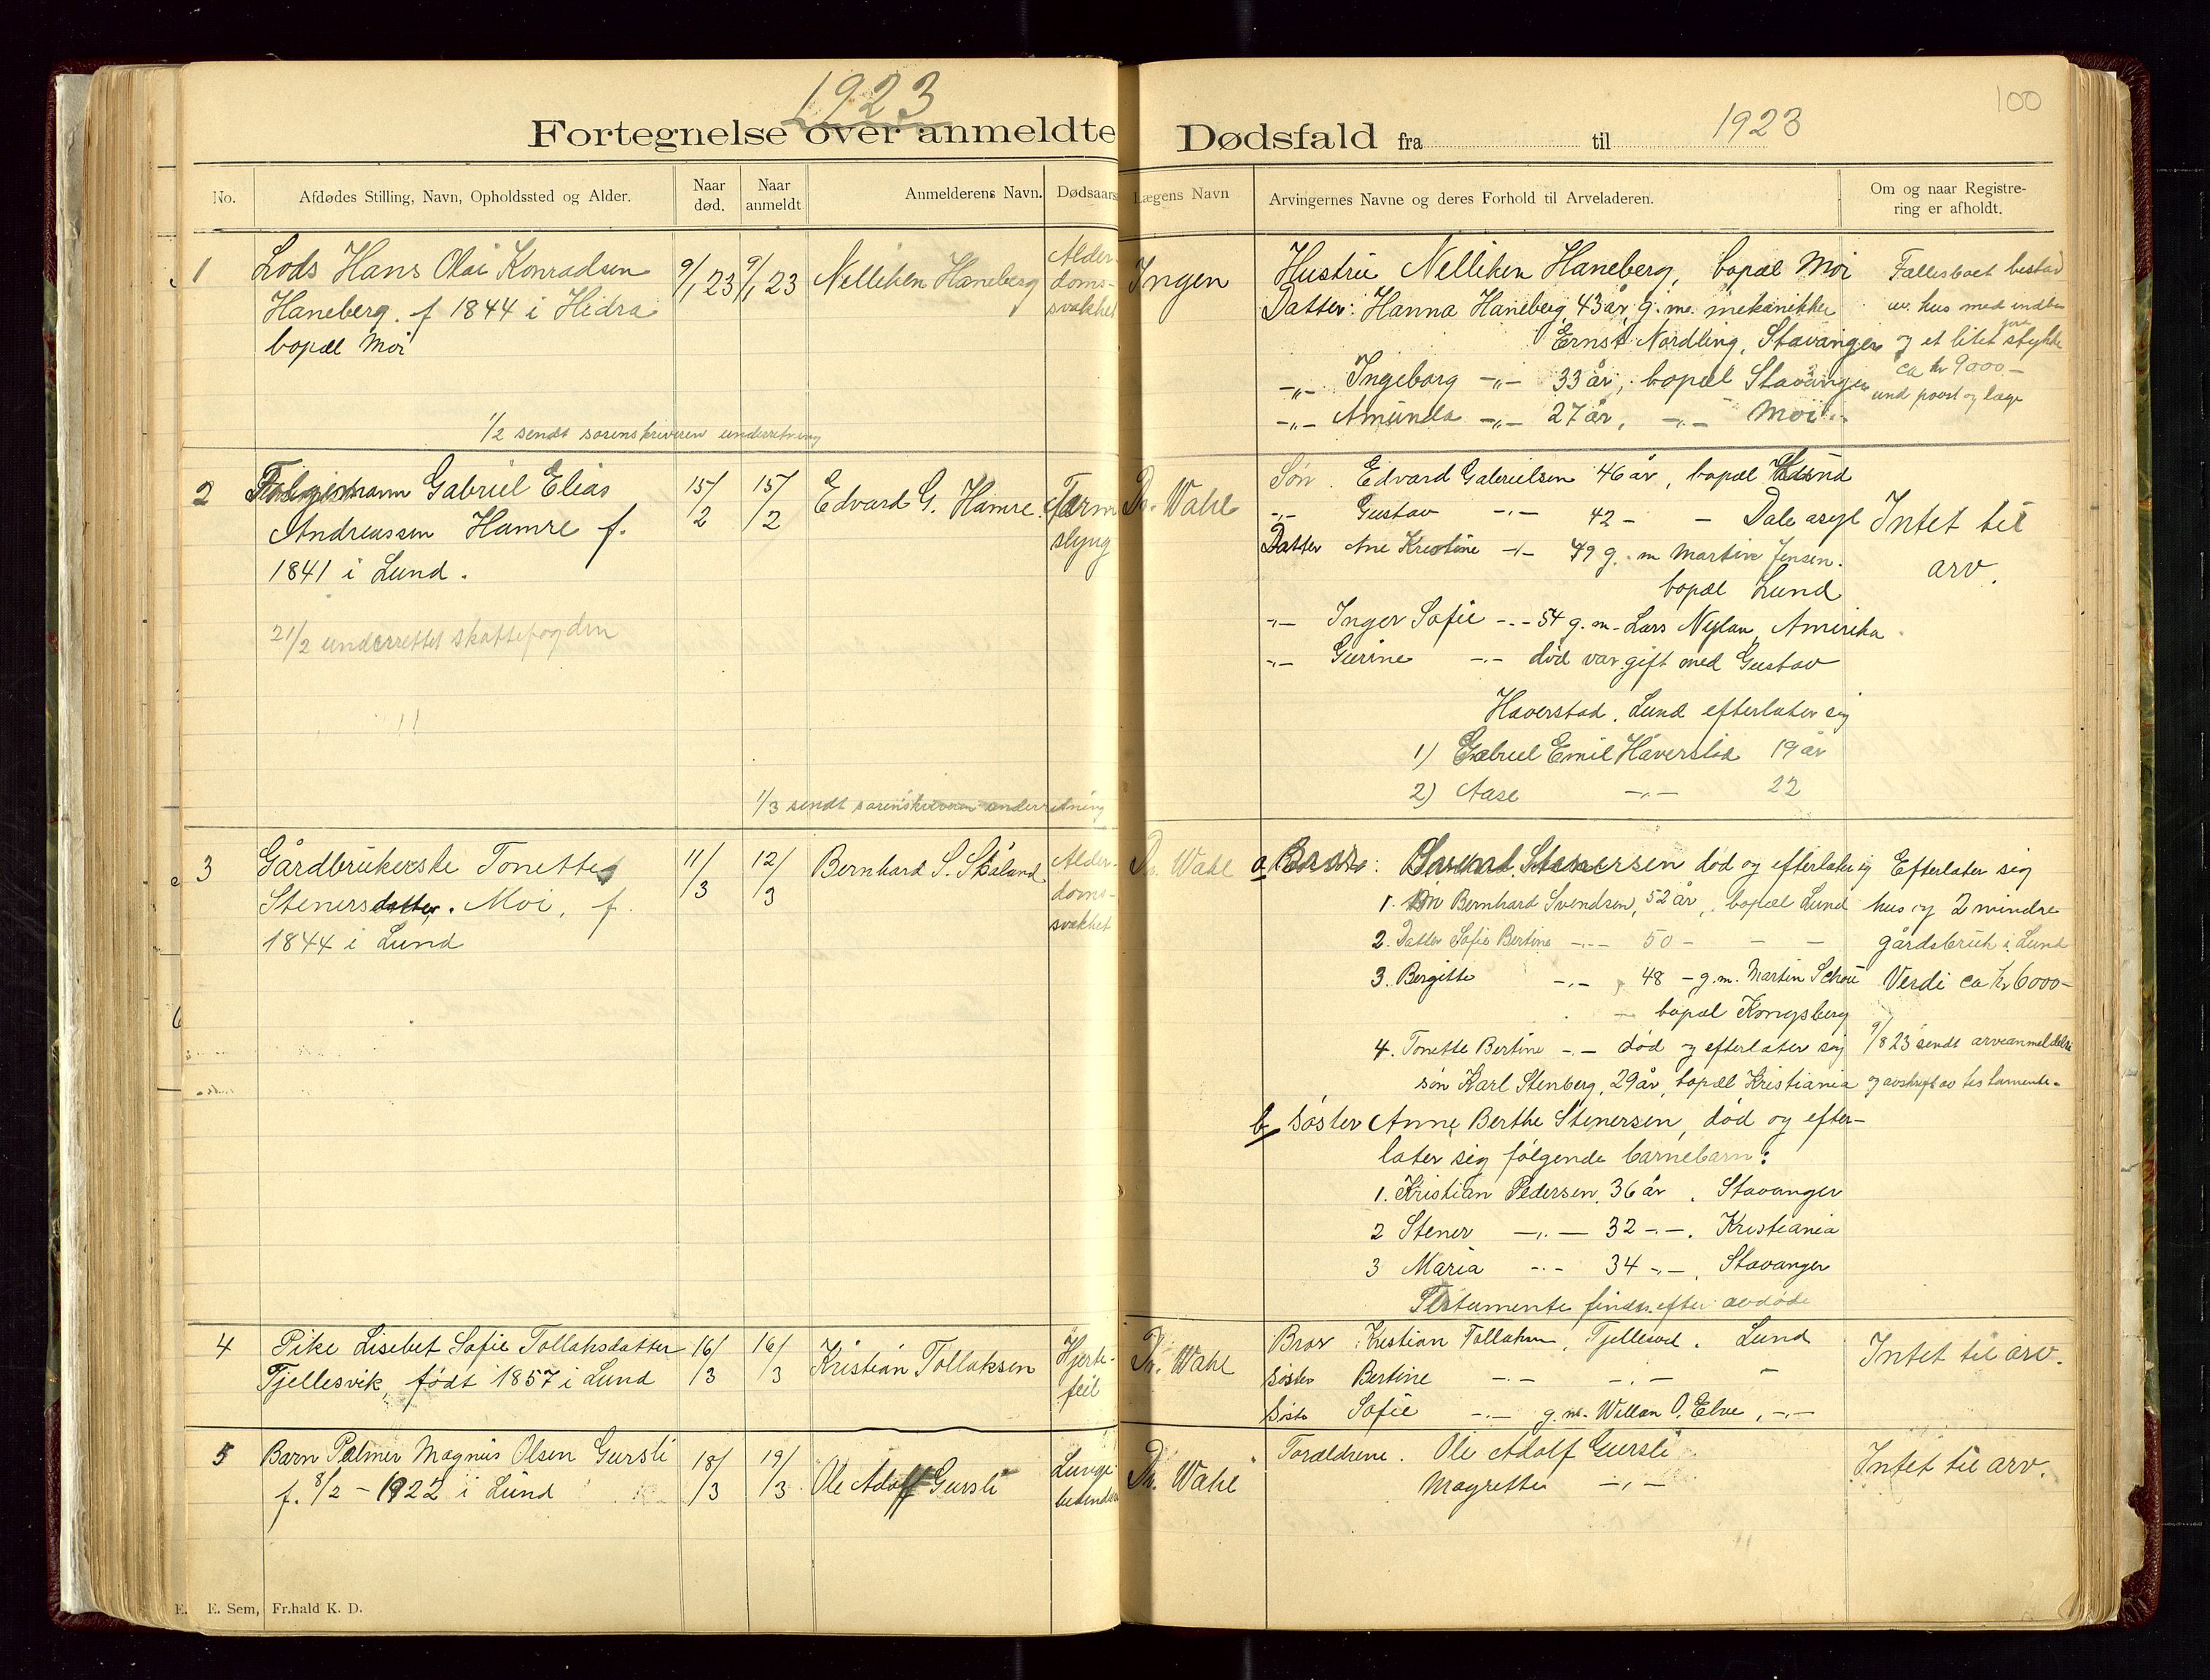 1923
Fortegnelse over anmeldte Dødsfald fra til 1923
100
No.
Afdødes Stilling, Navn, Opholdssted og Alder.
Naar død.
Naar anmeldt
Anmelderens Navn.
Dødsaars
Lægens Navn
Arvingernes Navne og deres Forhold til Arveladeren.
Om og naar Registrering er afholdt.
1
Lods Hans Olai Konradsen
Haneberg. f 1844 i Hidra
bopæl Moi
9/1 23
9/1 23
Nelliken Haneberg
Alder-
doms-
svakhet
Ingen
Hustru Nelliken Haneberg, bopæl Moi
Datter: Hanna Haneberg, 43 år, g. m. mekanikker
Ernst Nordling, Stavanger
-„- Ingeborg -„- 33 år, bopæl Stavanger
-„- Amunda -„- 27 år, -„- Moi
Fællesboet bestod
av hus med indbo
og et litet jordstykke
ca kr 9000-
1/2 sendt sorenskriveren underretning
2
Gabriel Elias
Andreassen Hamre f.
1841 i Lund.
21/2 underrettet skattefogden
15/2
15/2
Edvard G. Hamre
Tarm
slyng
Dr. Wahl
Søn. Edvard Gabrielsen 46 år, bopæl Lund
-„- Gustav -„- 42 - - Dale asyl
Datter Ane Kristine -„- 49 g. m Martin Jensen.
bopæl Lund
-„- Inger Sofie -„- 54 g. m. Lars Nylan, Amerika
-„- Gurine -„- død var gift med Gustav
Haverstad, Lund efterlater sig
1) Gabriel Emil Haverstad 19 år
2) Aase -„- 22
Intet til
arv.
1/3 sendt sorenskriveren underretning
3
Gårdbrukerske Tonette
Stenersdatter. Moi, f.
1844 i Lund
11/3
12/3
Bernhard S. Skåland
Alder-
doms-
svakhet
Dr. Wahl
a Bror: Stenersen død og efterlater sig
1. Søn Bernhard Svendsen, 52 år, bopæl Lund
2. Datter Sofie Bertine -„- 50 - - -
3. Bergitte -„- 48 - g.m. Martin Schou
bopæl Kongsberg
4. Tonette Bertine -„- død og efterlater sig
søn Karl Stenberg, 29 år, bopæl Kristiania
b/ Søster Anne Berthe Stenersen, død og efter-
later sig følgende barnebarn:
1. Kristian Pedersen, 36 år, Stavanger
2 Stener -„- 32 -„-. Kristiania
3 Maria -„- 34 -„-. Stavanger
Testamente findes efter avdøde
Efterlater sig
hus og 2 mindre
gårdsbruk i Lund
Verdi ca kr 6000-
9/8 23 sendt arveanmeldelse
og avskrift av testamente.
4
Pike Lisebet Sofie Tollaksdatter
Tjellesvik, født 1857 i Lund
16/3
16/3
Kristian Tollaksen
Hjerte-
feil
Dr. Wahl
Bror: Kristian Tollaksen, Tjellesvik. Lund
Søster Bertine -„- -„- -
Søster Sofie -„- g. m. O. Elve, -„-
Intet til arv.
5
Barn Palmer Magnus Olsen Gursli
f. 8/2 - 1922 i Lund
18/3
19/3
Ole Adolf Gursli
Lunge
Dr. Wahl
Forældrene. Ole Adolf Gursli
Magrette -„-
Intet til arv.
E. E. Sem, Fr.hald K. D.